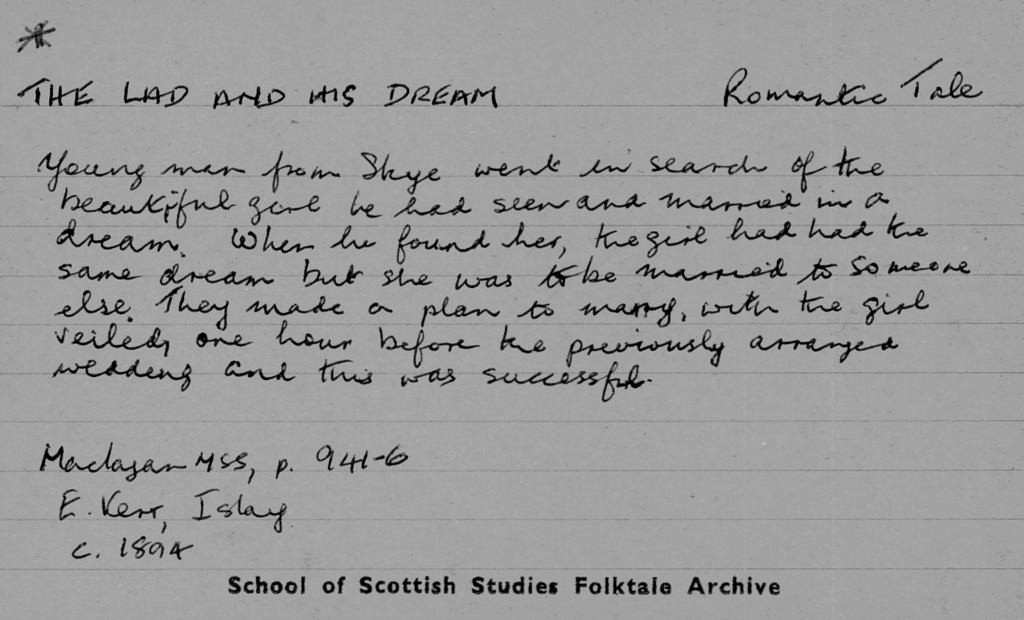 THE LAD AND HIS DREAM Romantic Tale
Young man from Skye went in search of the
beautiful girl he had seen and married in a
dream. When he found her, the girl had had the
same dream but she was to be married to someone
else. They made a plan to marry, with the girl
veiled, one hour before the previously arranged
wedding and this was successful.
Maclagan MSS, p. 941-6
E. Kerr, Islay
c. 1894
School of Scottish Studies Folktale Archive